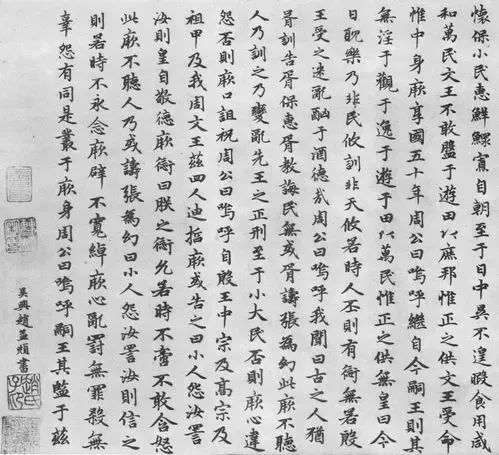 懷保小民惠鮮鰥寡自朝至于日中昃不遑暇食用咸
和萬民文王不敢盤于遊田以庶邦惟正之供文王受命
惟中身厥享國五十年周公曰嗚呼繼自今嗣王則其
無淫于觀于逸于遊于田以萬民惟正之供無皇曰今
日耽樂乃非民攸訓非天攸若時人丕則有愆無若殷
王受之迷亂酗于酒德哉周公曰嗚呼我聞曰古之人猶
胥訓告胥保惠胥教誨民無或胥譸張為幻此厥不聽
人乃訓之乃變亂先王之正刑至于小大民否則厥心違
怨否則厥口詛祝周公曰嗚呼自殷王中宗及高宗及
祖甲及我周文王茲四人迪哲厥或告之曰小人怨汝詈
汝則皇自敬德厥愆曰朕之愆允若時不啻不敢含怒
此厥不聽人乃或譸張為幻曰小人怨汝詈汝則信之
則若時不永念厥辟不寬綽厥心亂罰無罪殺無
辜怨有同是叢于厥身周公曰嗚呼嗣王其監于茲
吳興趙孟頫書
趙氏子昂